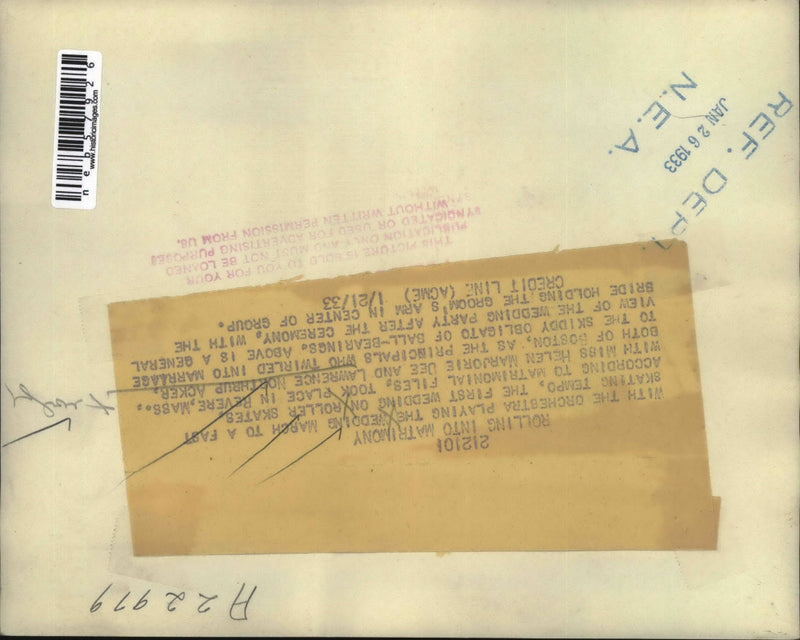 A22979
212101
ROLLING INTO MATRIMONY
WITH THE ORCHESTRA PLAYING THE WEDDING MARCH TO A FAST
SKATING TEMPO, THE FIRST WEDDING ON ROLLER SKATES,
ACCORDING TO MATRIMONIAL FILES, TOOK PLACE IN REVERE, MASS.,
WITH MISS HELEN MARJORIE DEE AND LAWRENCE NORTHRUP ACKER,
BOTH OF BOSTON, AS THE PRINCIPALS WHO TWIRLED INTO MARRIAGE
TO THE SKIDDY OBLIGATO OF BALL-BEARINGS. ABOVE IS A GENERAL
VIEW OF THE WEDDING PARTY AFTER THE CEREMONY, WITH THE
BRIDE HOLDING THE GROOM'S ARM IN CENTER OF GROUP.
CREDIT LINE (ACME) 1/21/33
THIS PICTURE IS SOLD TO YOU FOR YOUR
PUBLICATION ONLY AND MUST NOT BE LOANED
SYNDICATED OR USED FOR ADVERTISING PURPOSES
WITHOUT WRITTEN PERMISSION FROM US.
REF. DEPT
JAN 26 1933
N.E.A.
www.historicimages.com
neb57926